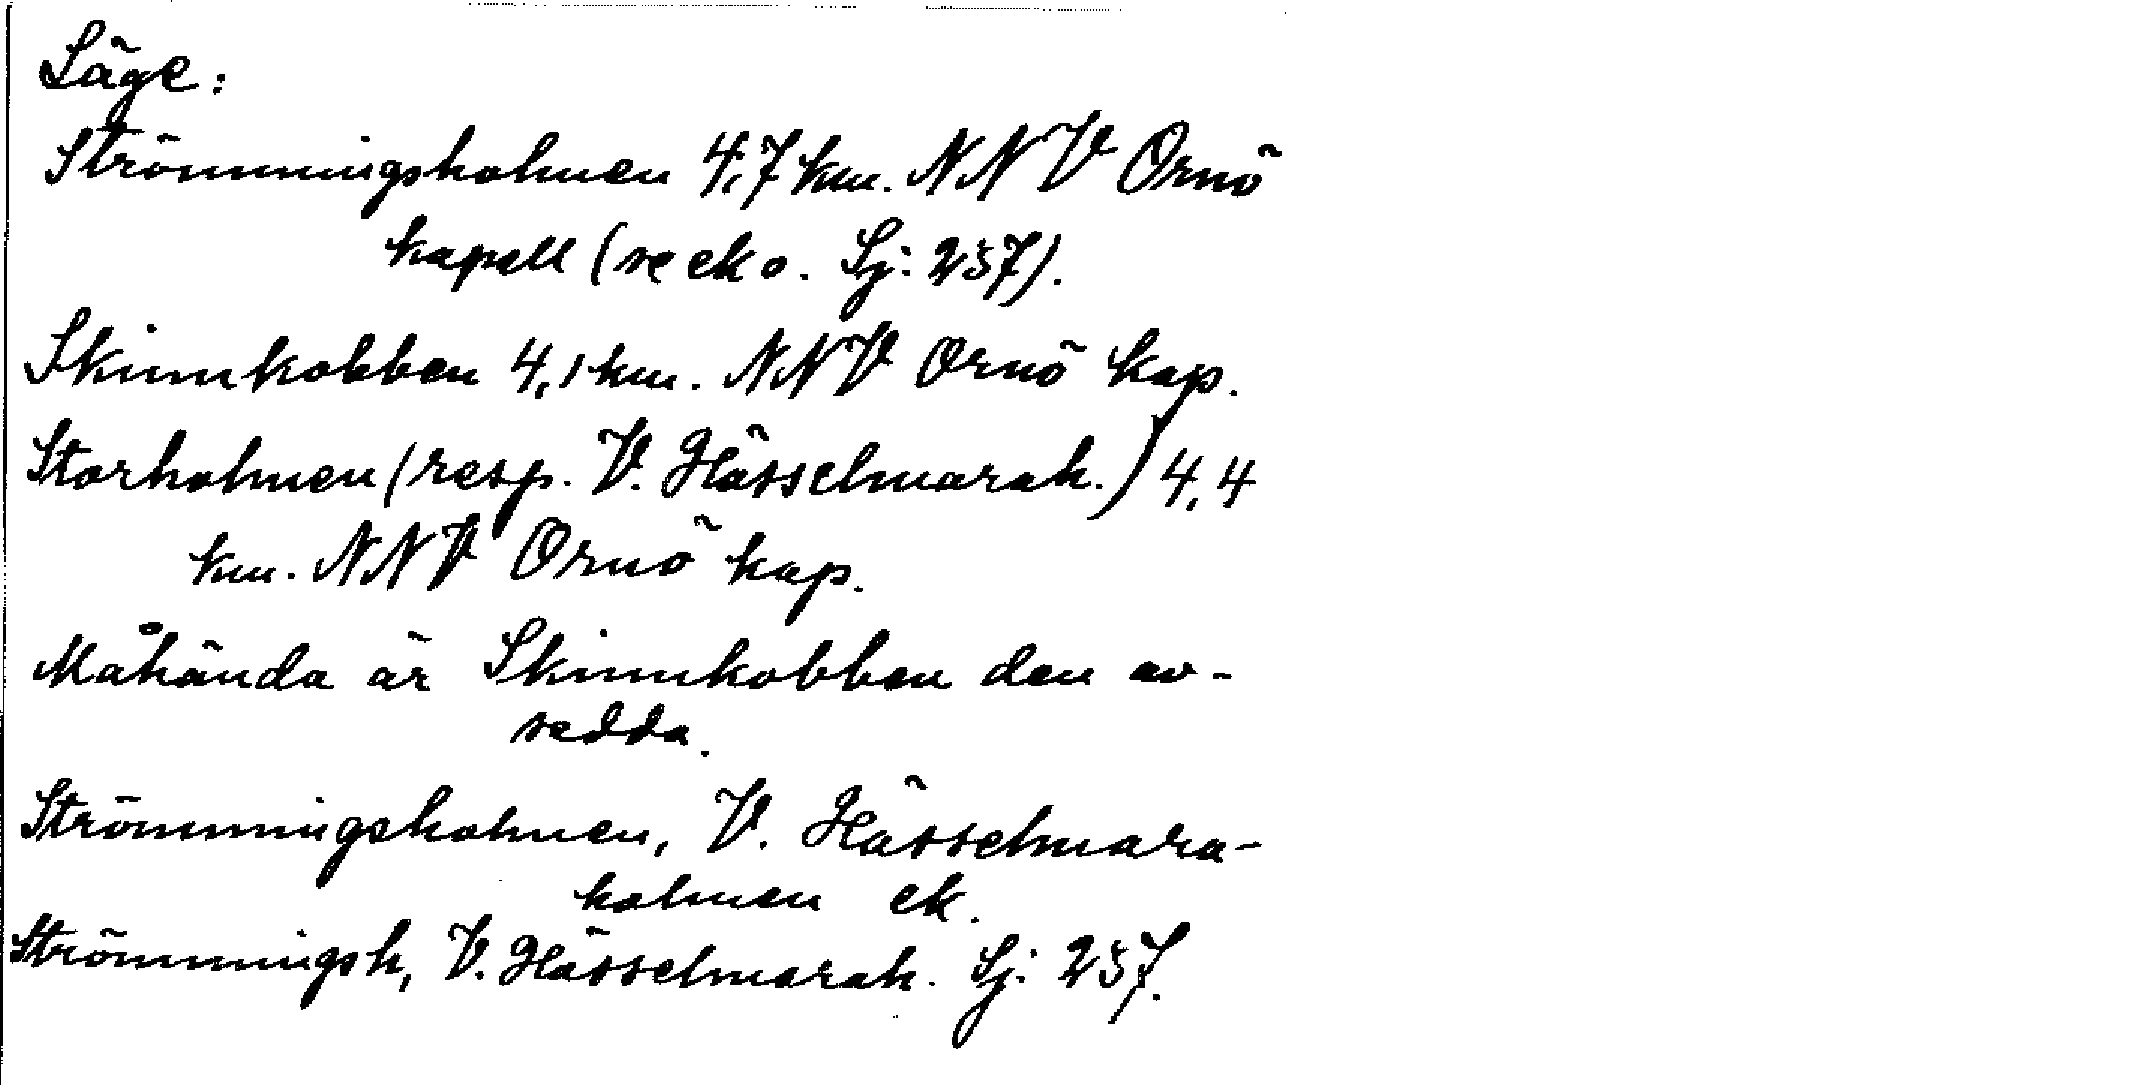 Läge:
Strömmingsholmen 4,7 km. NNV Ornö
kapell (se eko. Sj: 257).
Skinnkobben 4,1 km. NNV Ornö kap.
Storholmen (resp. V. Hässelmarah.) 4,4
km. NNV Ornö kap.
Måhända är Skinnkobben den av-
sedda.
Strömmingsholmen, V. Hässelmara-
holmen ek.
Strömmingsh, V. Hässelmarah. Sj: 257.